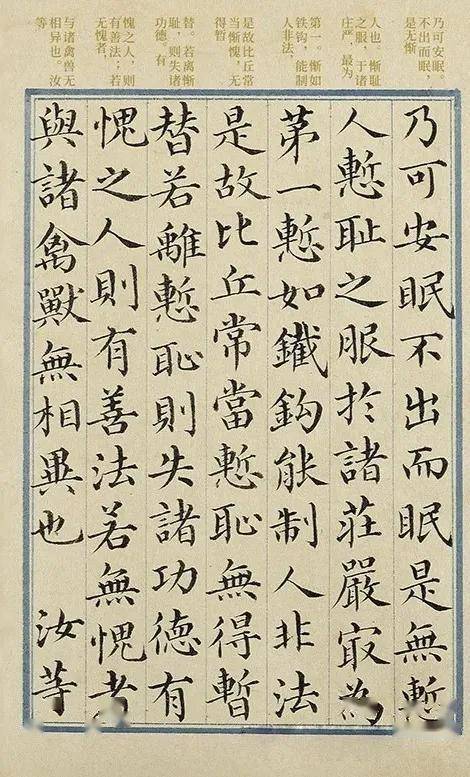 乃可安眠。
不出而眠，
是无惭
人也。惭耻
之服，于诸
庄严，最为
第一。惭如
铁钩，能制
人非法，
是故比丘常
当惭愧，无
得暂
替。若离惭
耻，则失诸
功德。有
愧之人，则
有善法；若
无愧者，
与诸禽兽无
相异也。汝
等
乃可安眠不出而眠是無慙
人慙耻之服於諸莊嚴冣為
苐一慙如鐵鈎能制人非法
是故比丘常當慙恥無得暫
替若離慙恥則失諸功德有
愧之人則有善法若無愧者
與諸禽獸無相異也 汝等